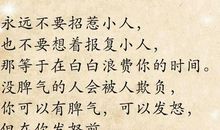 永远不要招惹小人，
也不要想着报复小人，
那等于在白白浪费你的时间。
没脾气的人会被人欺负，
你可以有脾气，可以发怒，
但在你发怒前